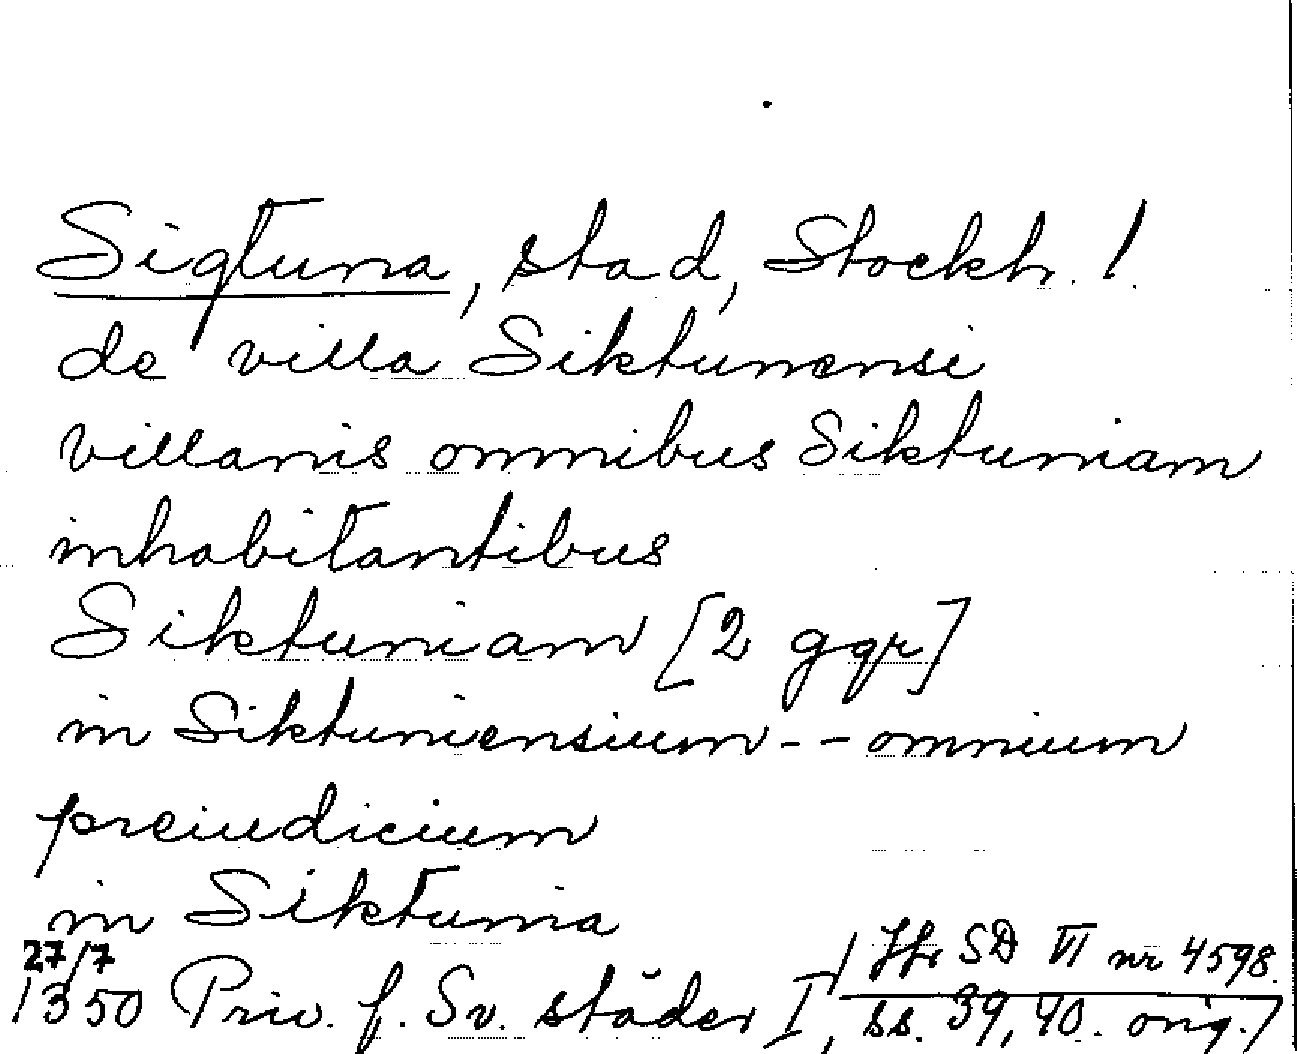 Sigtuna, stad, Stockh. l.
de villa Siktunensi
villanis omnibus Siktuniam
inhabitantibus
Siktuniam [2 ggr]
in Siktuniensium -- omnium
preiudicium
in Siktunia
27/7 Jfr SD VI nr 4598.
1350 Priv. f. Sv. städer I, ss. 39, 40. orig.